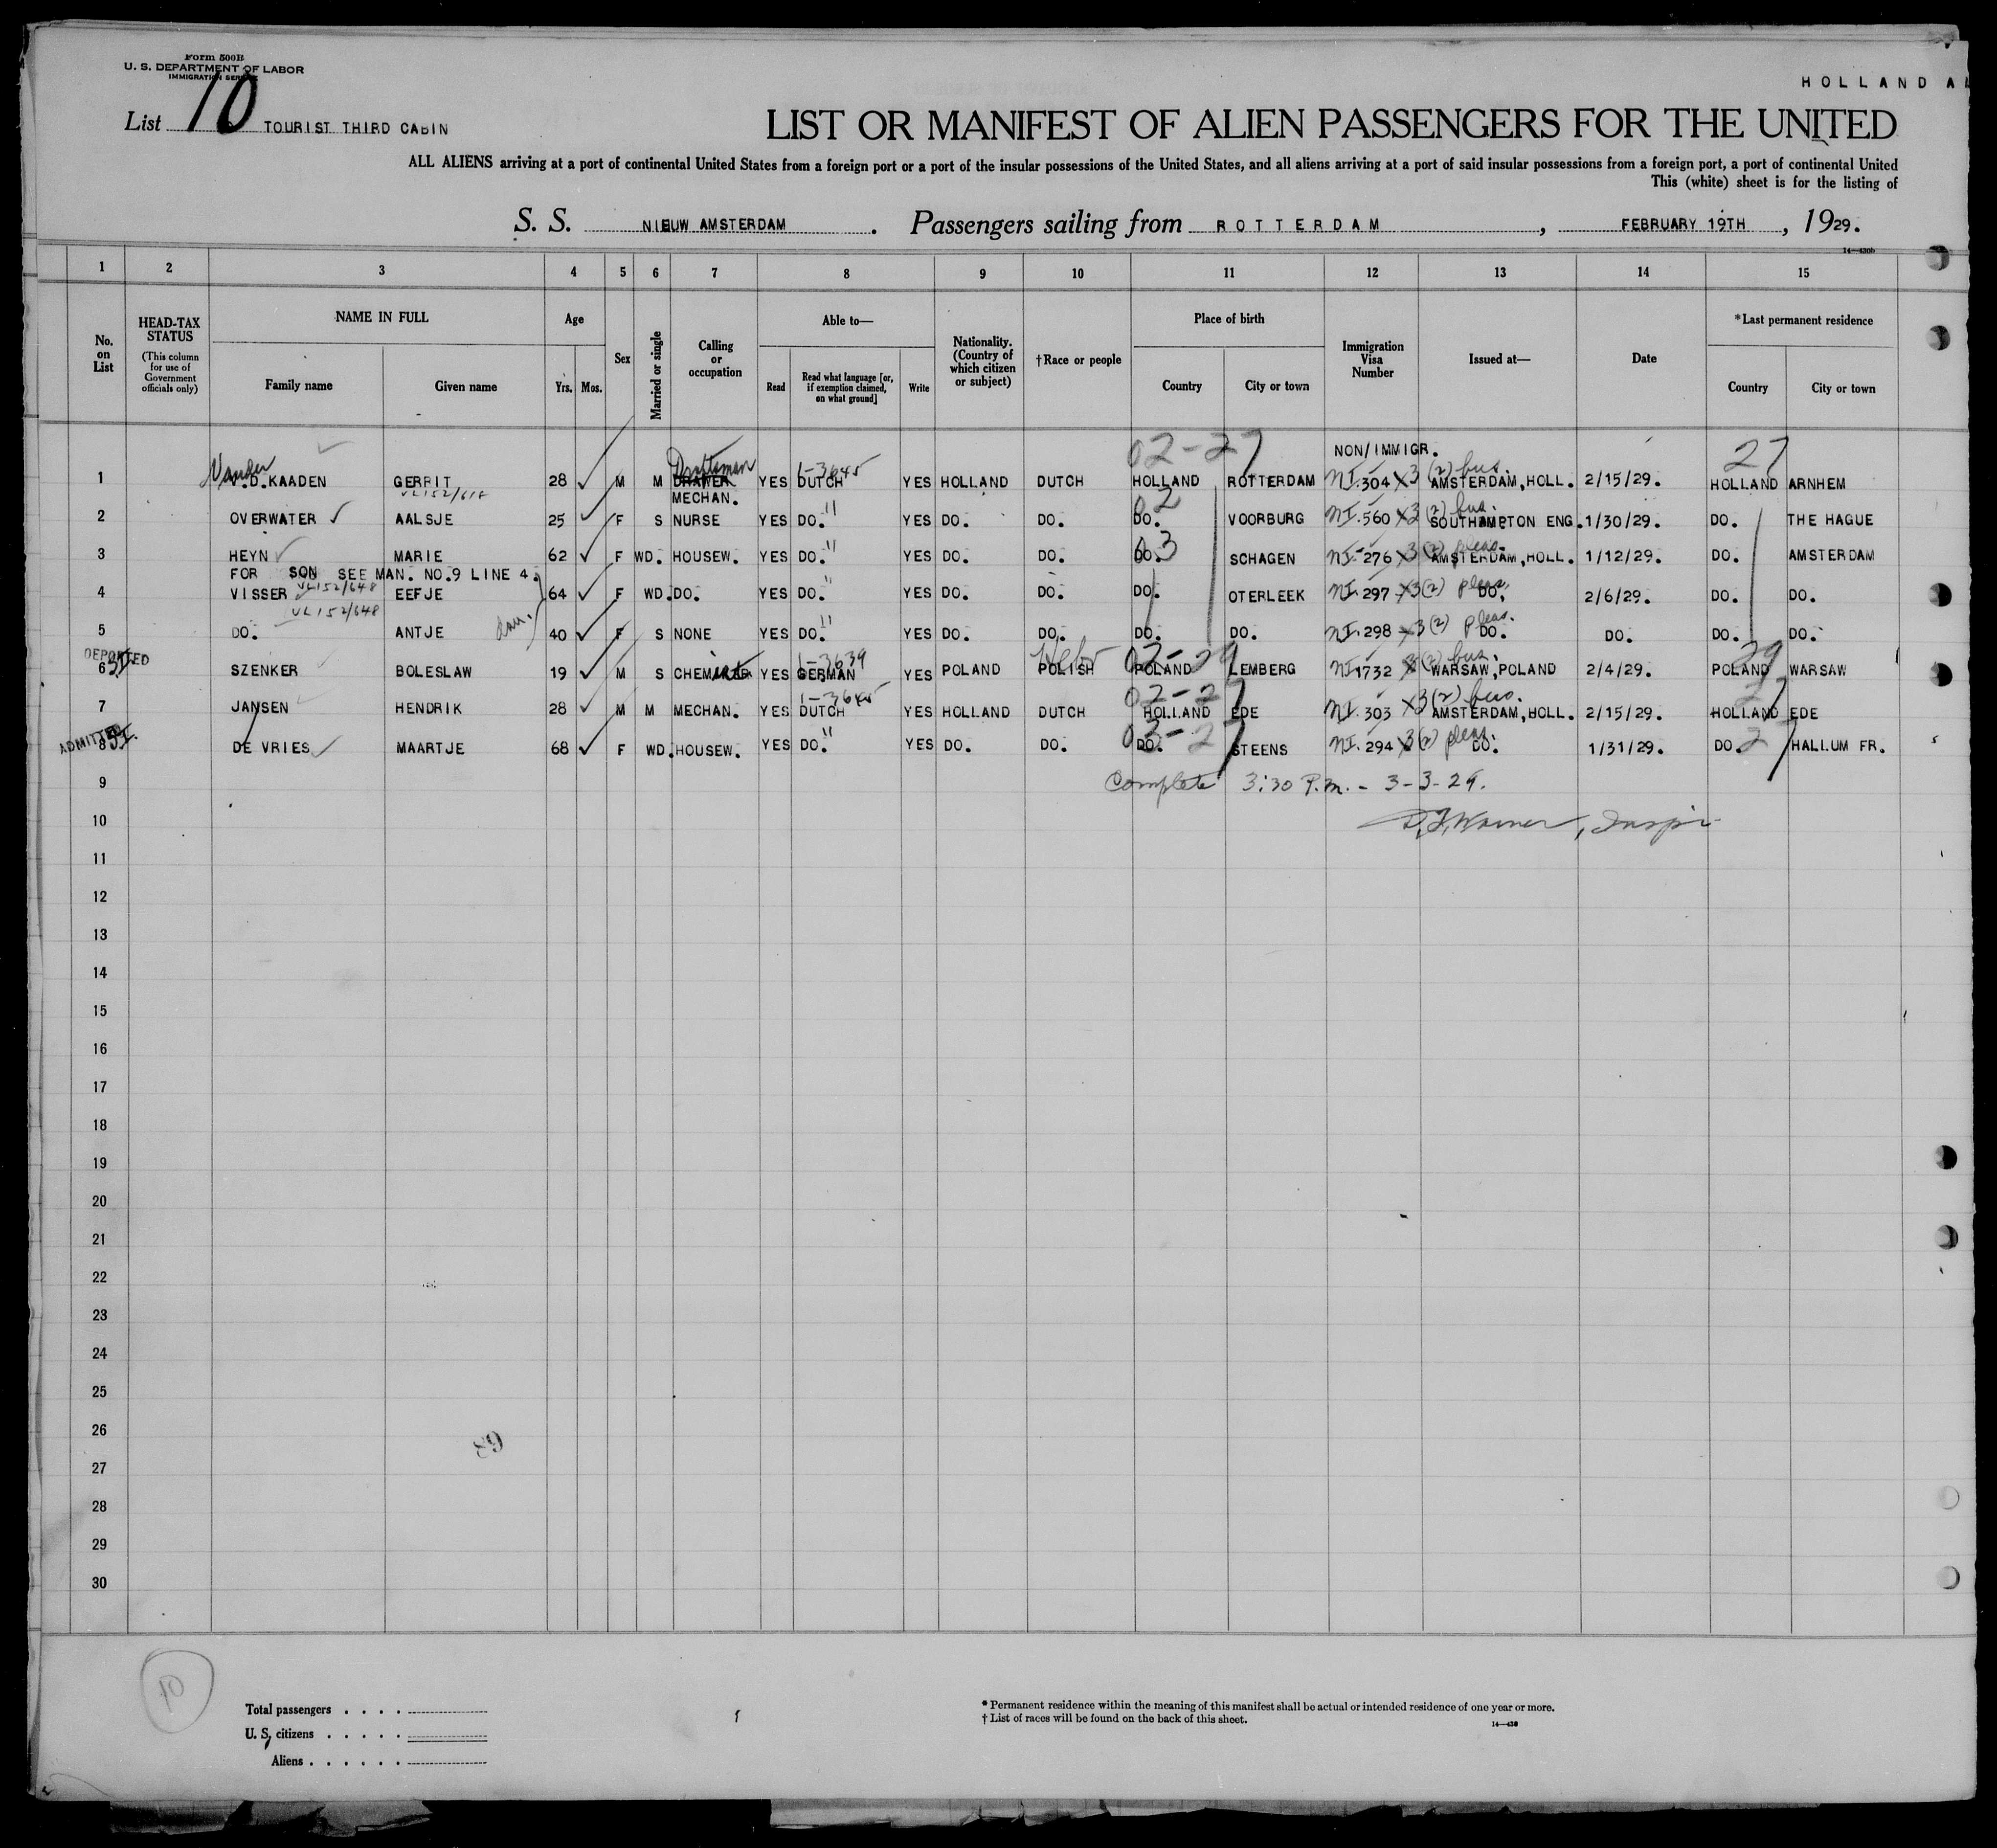 Form 500B
U. S. DEPARTMENT OF LABOR
IMMIGRATION SERVICE
HOLLAND A
List 10 TOURIST THIRD CABIN
LIST OR MANIFEST OF ALIEN PASSENGERS FOR THE UNITED
ALL ALIENS arriving at a port of continental United States from a foreign port or a port of the insular possessions of the United States, and all aliens arriving at a port of said insular possessions from a foreign port, a port of continental United
This (white) sheet is for the listing of
S. S. NIEUW AMSTERDAM . Passengers sailing from ROTTERDAM , FEBRUARY 19TH , 1929.
14—430b
1 2 3 4 5 6 7 8 9 10 11 12 13 14 15
No. on List
HEAD-TAX STATUS
(This column for use of Government officials only)
NAME IN FULL
Family name Given name
Age
Yrs. Mos.
Sex
Married or single
Calling or occupation
Able to—
Read Read what language [or, if exemption claimed, on what ground] Write
Nationality. (Country of which citizen or subject)
†Race or people
Place of birth
Country City or town
Immigration Visa Number
Issued at—
Date
*Last permanent residence
Country City or town
02-27 NON/IMMIGR. 27
Vander Draftsman 1-3645 (2) bus.
1 V.D.KAADEN GERRIT 28 M M DRAWER YES DUTCH YES HOLLAND DUTCH HOLLAND ROTTERDAM NI.304 X3 AMSTERDAM,HOLL. 2/15/29. HOLLAND ARNHEM
MECHAN.
2 OVERWATER AALSJE 25 F S NURSE YES DO. " YES DO. DO. DO. 02 VOORBURG NI.560 X3 (2) bus. SOUTHAMPTON ENG. 1/30/29. DO. THE HAGUE
3 HEYN MARIE 62 F WD. HOUSEW. YES DO. " YES DO. DO. DO. 03 SCHAGEN NI-276 X3 (2) pleas. AMSTERDAM,HOLL. 1/12/29. DO. AMSTERDAM
FOR SON SEE MAN. NO.9 LINE 4.
4 VISSER VL152/648 EEFJE 64 F WD. DO. YES DO. " YES DO. DO. DO. OTERLEEK NI.297 X3 (2) pleas. DO. 2/6/29. DO. DO.
VL152/648
5 DO. ANTJE 40 F S NONE YES DO. " YES DO. DO. DO. DO. NI.298 X3 (2) pleas. DO. DO. DO. DO.
DEPORTED SI Hebr 1-3639 02-29 29
6 SZENKER BOLESLAW 19 M S CHEMIST YES GERMAN YES POLAND POLISH POLAND LEMBERG NI1732 X3 (2) bus. WARSAW,POLAND 2/4/29. POLAND WARSAW
1-3645 02-27 27
7 JANSEN HENDRIK 28 M M MECHAN. YES DUTCH YES HOLLAND DUTCH HOLLAND EDE NI.303 X3 (2) bus. AMSTERDAM,HOLL. 2/15/29. HOLLAND EDE
ADMITTED SI 03-27 27
8 DE VRIES MAARTJE 68 F WD. HOUSEW. YES DO. " YES DO. DO. DO. STEENS NI.294 X3 (2) pleas. DO. 1/31/29. DO. HALLUM FR.
9 Complete 3:30 P.m. - 3-3-29.
10
11
12
13
14
15
16
17
18
19
20
21
22
23
24
25
26
89
27
28
29
30
10
Total passengers
U. S. citizens
Aliens
* Permanent residence within the meaning of this manifest shall be actual or intended residence of one year or more.
† List of races will be found on the back of this sheet.
14—430